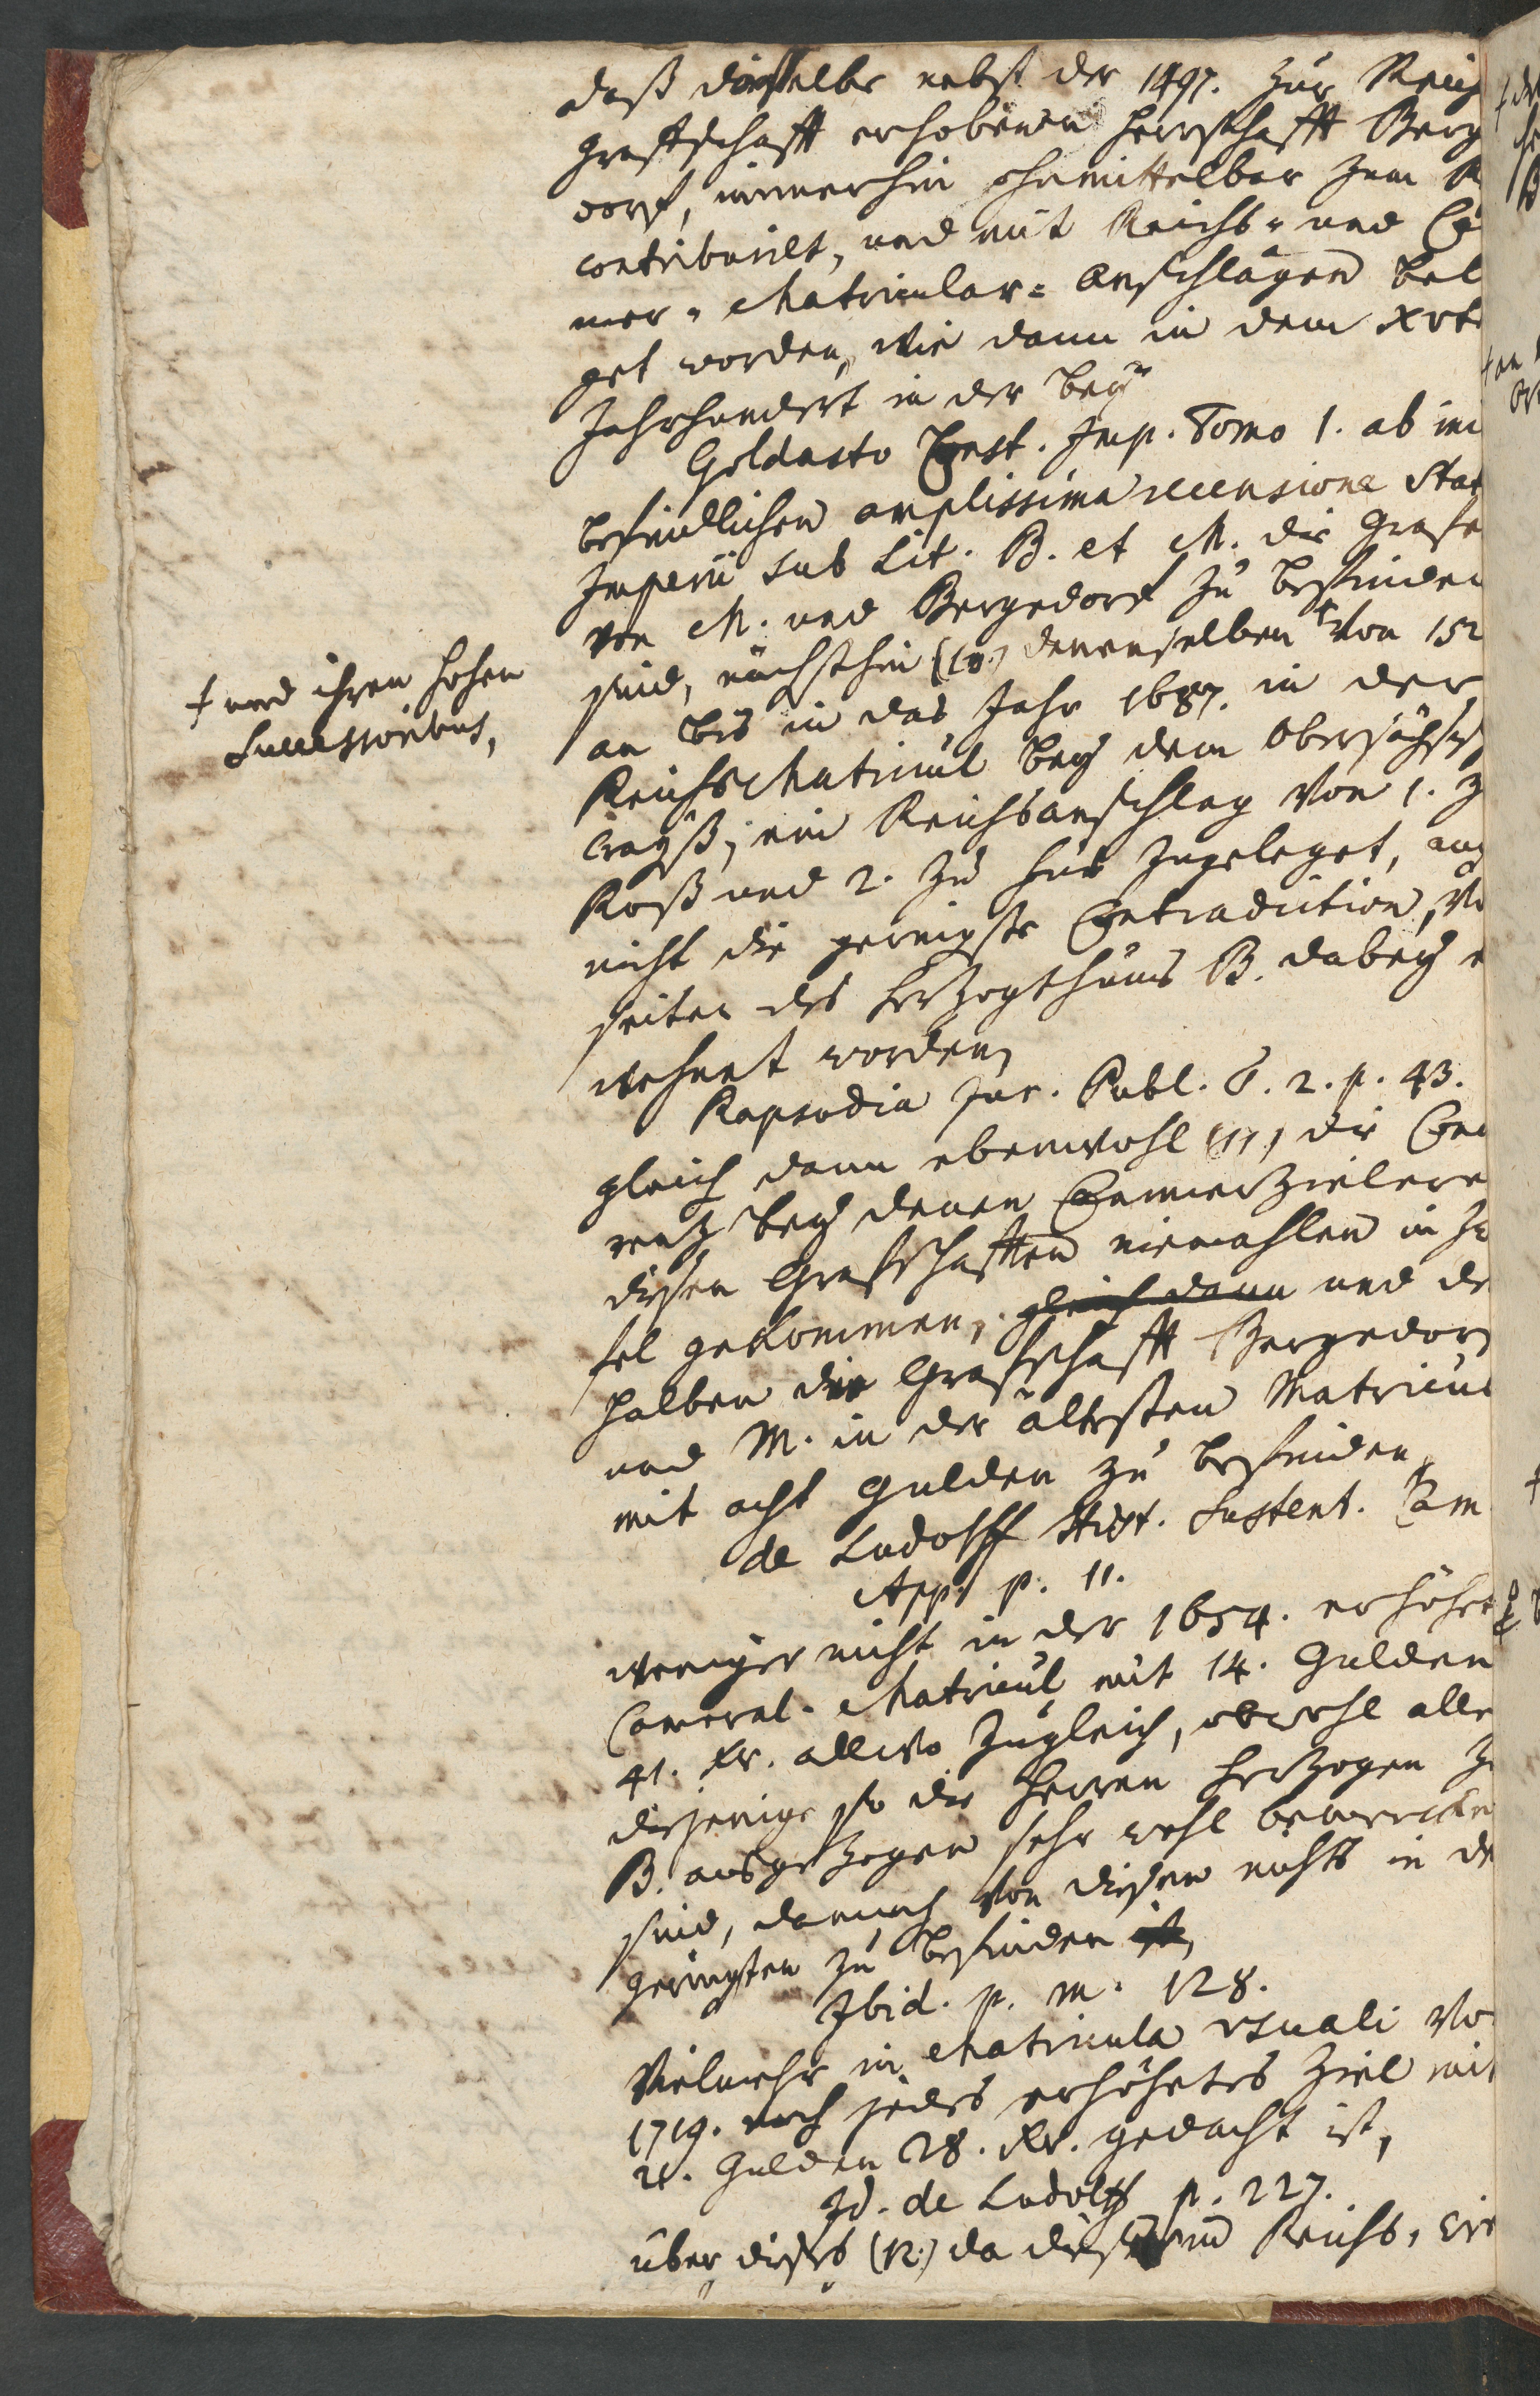 daß dieselbe nebst der 1497. zur Reichs
graffschafft erhobenen Herrschafft Berge
dorf, immerhin ohnmittelbar zum R
contribuirt, und mit Reichs- und Ca
mer- Matricular- Anschlägen bele
get worden, wie dann in dem XVte
Jahrhundert in der bey
Goldasto Const. Imp. Tomo 1. ab ini
befindlichen amplissima recensione Stat
Imperii sub Lit. B. et M. die Grafe
von M. und Bergedorf zu befinden
sind, nächsthin (10.) denenselben † von 152
an bis in das Jahr 1687. in der
Reichs Matricul bey dem Obersächs
Crayß, ein Reichsanschlag von 1. z
Roß und 2. zu Fuß zugeleget, auch
nicht die geringste Contradiction, vo
seiten des Herzogthums B. dabey e
wehnt worden,
Rapsodia Jur. Publ. T. 2. p. 43.
gleich dann ebenwohl (11.) die Con
renz bey denen Cammerzielern
diesen Graffschafften niemahlen in Zw
fel gekommen, gleich dann und de
halben die Graffschafft Bergedor
und M. in der ältesten Matricul
mit acht Gulden zu befinden,
de Ludolff Hist. Sustent. Cam
App. p. 11.
weniger nicht in der 1654. erhöhet
Cameral- Matricul mit 14. Gulden
41. Kr. allwo zugleich, obwohl alle
diejenige so die Herren Herzogen zu
B. ausgezogen sehr wohl bemercken
sind, dennoch von diesen nichts in de
geringsten zu befinden ist,
Ibid. p. m. 128.
Vielmehr in Matricula usuali vo
1719. noch jedes erhöhetes Ziel mit
21. Gulden 28. Kr. gedacht ist,
Id. de Ludolff p. 227.
über dieses (12.) da diese im Reichs, Cre
† und ihren hohen
Successoribus,